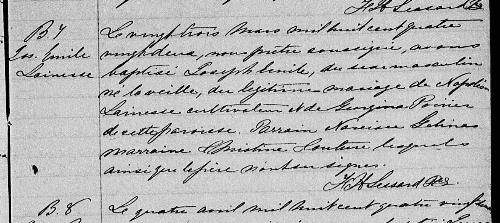 H H Lessard Ptre
B 7
Jos. Emile
Lainesse
Le vingt trois Mars mil huit cent quatre
vingt deux, nous prêtre soussigné, avons
baptisé Joseph Emile, du sexe masculin
né la veille, du légitime mariage de Napoléon
Lainesse cultivateur & de Georgina Poirier
de cette paroisse. Parrain Narcisse Gelinas
marraine Christine Couture lesquels
ainsi que le père n'ont su signer.
H H Lessard Ptre
B. 8
Le quatre avril mil huit cent quatre vingt